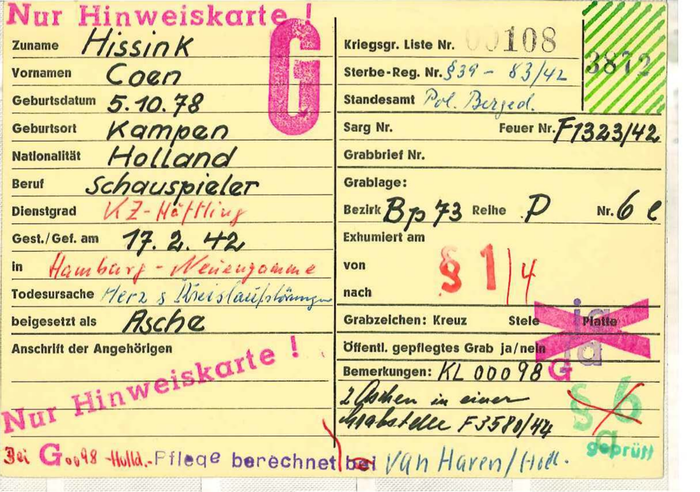 Nur Hinweiskarte !
Zuname Hissink
Vornamen Coen
Geburtsdatum 5.10.78
Geburtsort Kampen
Nationalität Holland
Beruf Schauspieler
Dienstgrad KZ-Häftling
Gest./Gef. am 17.2.42
in Hamburg - Neuengamme
Todesursache Herz & Kreislaufstörungen
beigesetzt als Asche
Anschrift der Angehörigen
Nur Hinweiskarte !
G
Kriegsgr. Liste Nr. 00108
3872
Sterbe-Reg. Nr. §39 - 83/42
Standesamt Pol. Berged.
Sarg Nr. Feuer Nr. F1323/42
Grabbrief Nr.
Grablage:
Bezirk Bp 73 Reihe P Nr. 6 e
Exhumiert am
von
nach
§ 1/4
Grabzeichen: Kreuz Stele Platte
ja
Öffentl. gepflegtes Grab ja/nein
ja
Bemerkungen: KL 00098 G
2 Aschen in einer
Grabstelle F3580/44
§ 6
a
geprüft
Bei G0098 -Holld.- Pflege berechnet bei van Haren/Holl.